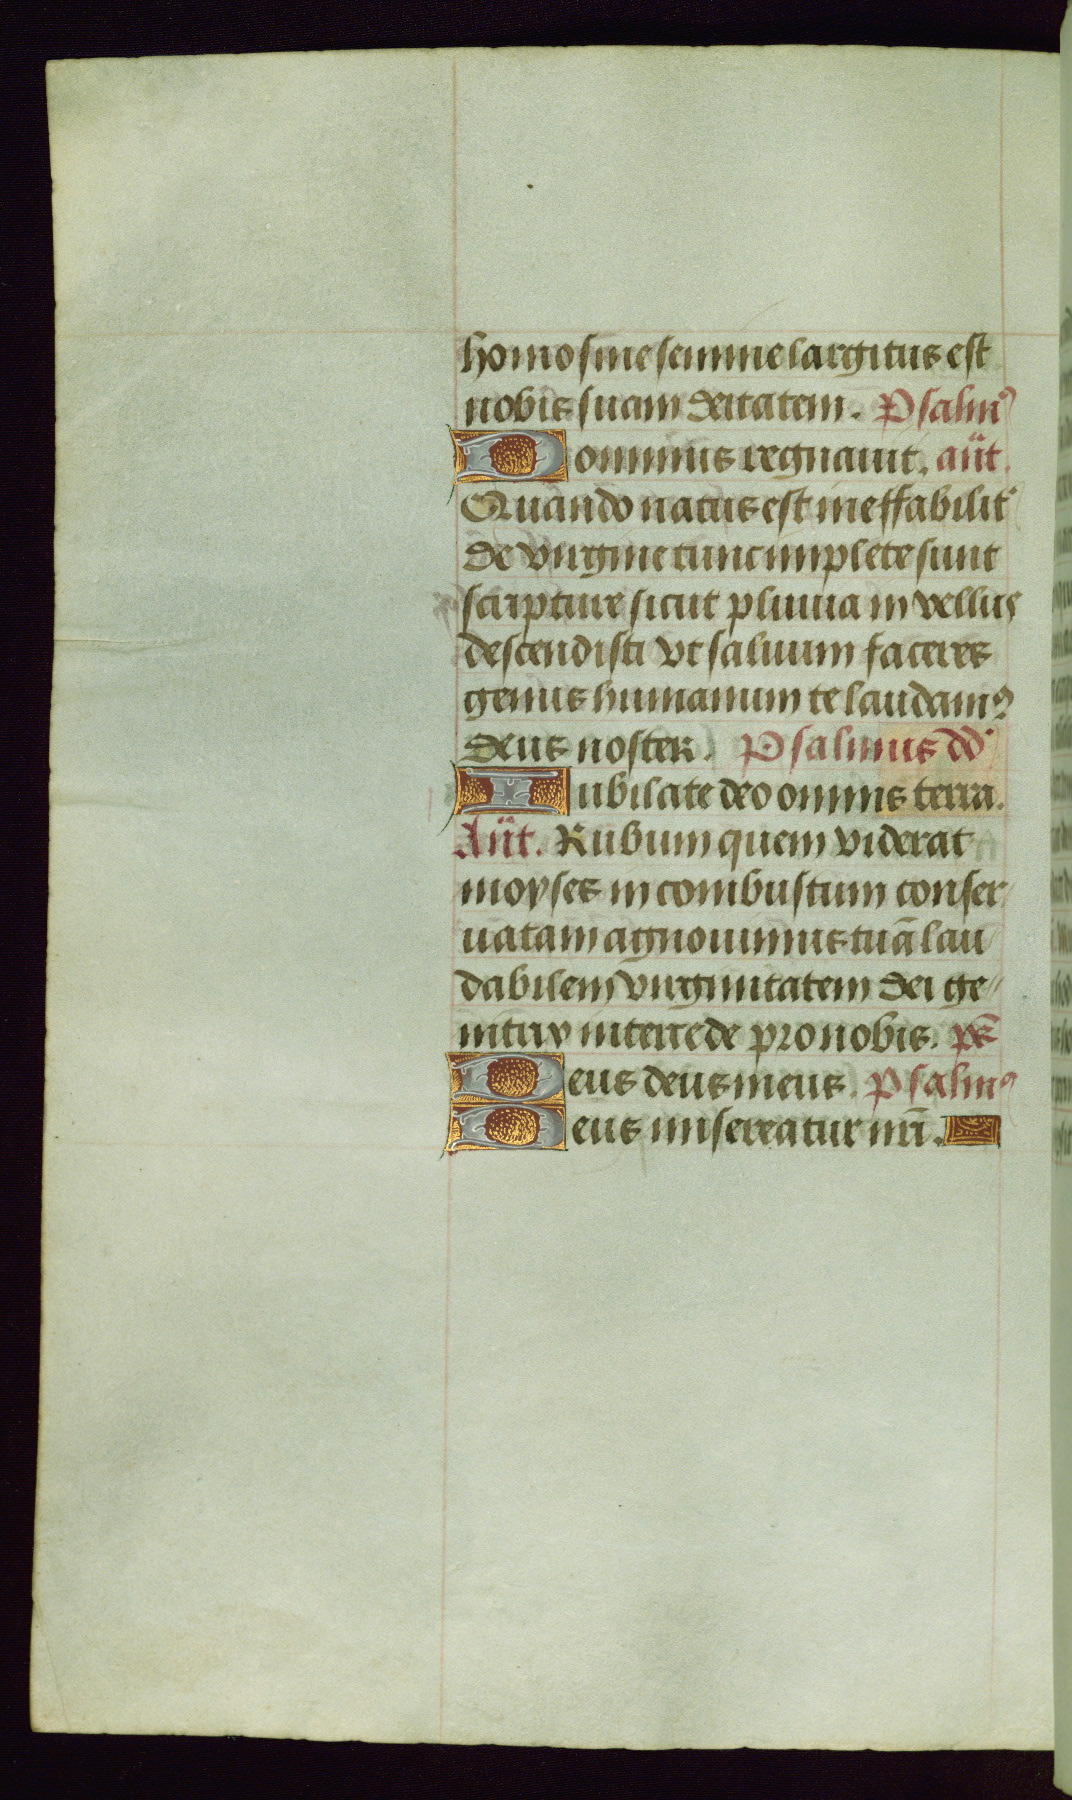 homo sine semine largitus est
nobis suam deitatem. Psalmꝰ
Dominus regnavit. añt.
Quando natus est ineffabilit᷑
de virgine tunc implete sunt
scripture sicut pluvia in vellus
descendisti vt salvum faceres
genus humanum te laudamꝰ
deus noster. Psalmus dd᷑
Iubilate deo omnis terra.
Añt. Rubum quem viderat
moyses incombustum conser
vatam agnovimus tuā lau
dabilem virginitatem dei ge//
nitrix intercede pro nobis. ps̄
Deus deus meus. Psalmꝰ
Deus misereatur nr̄i.